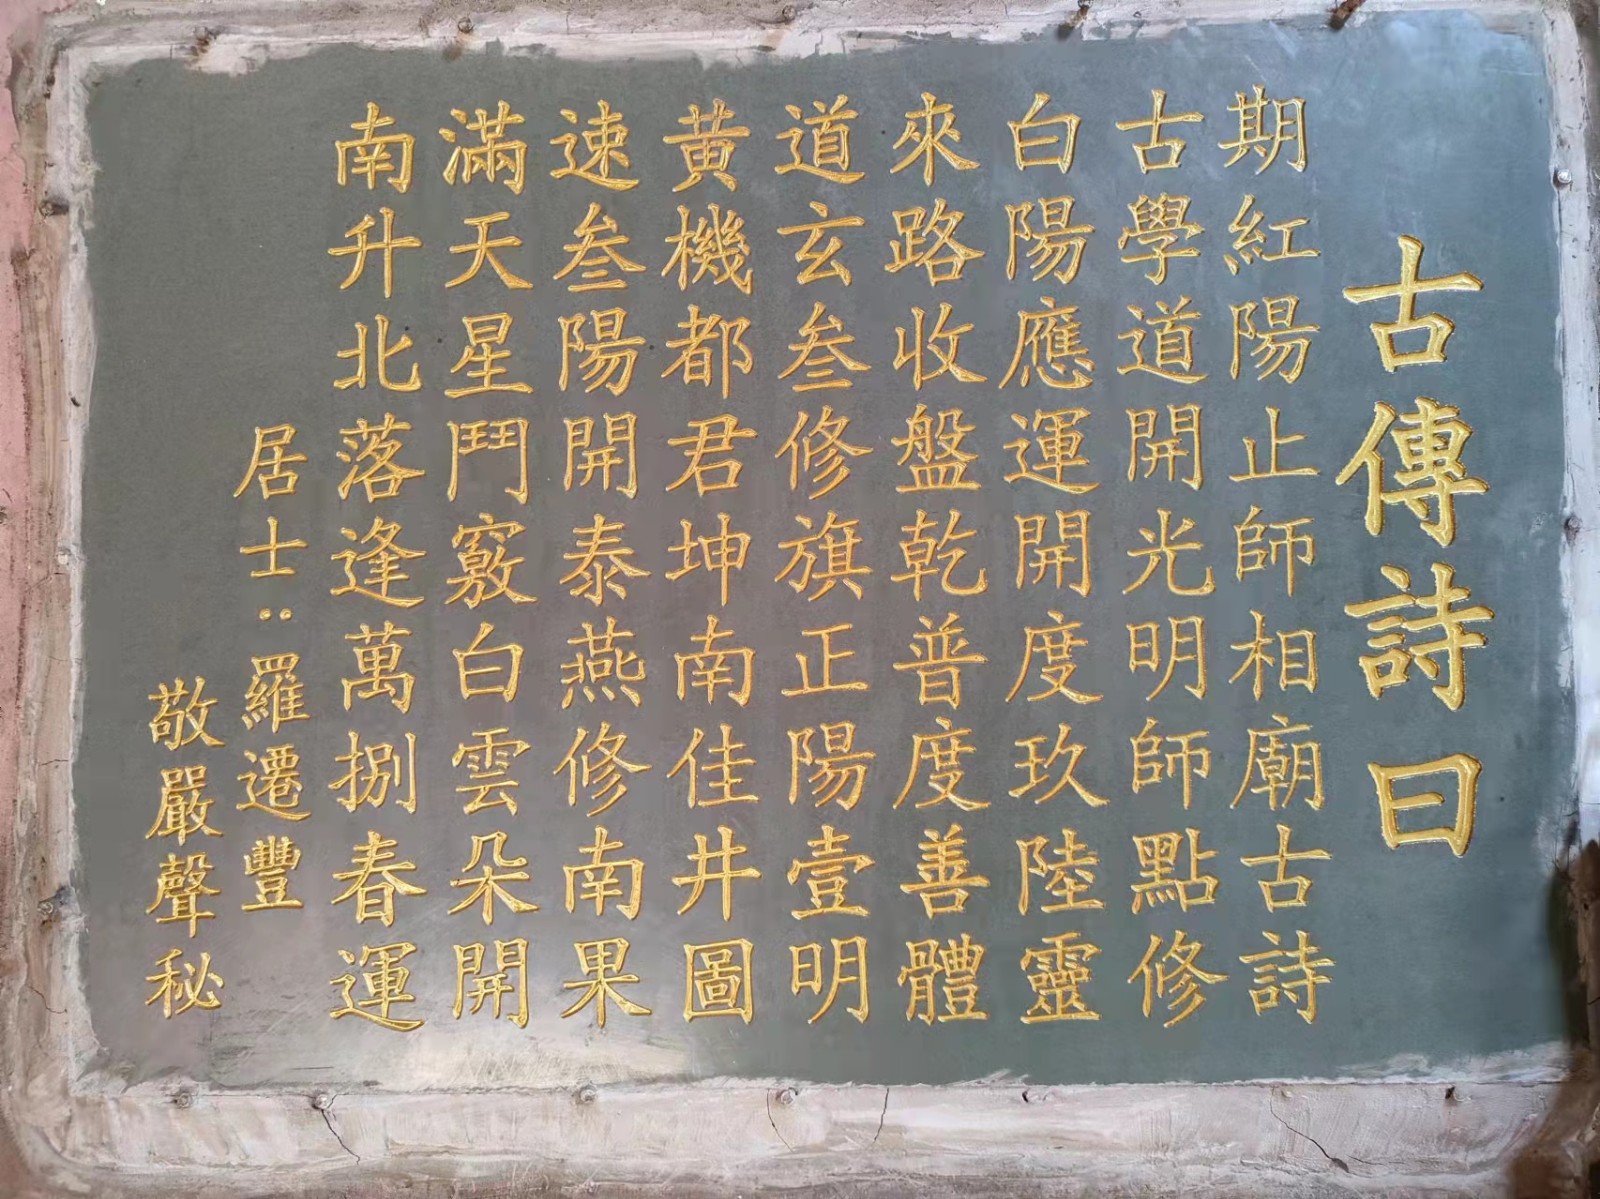 古傳詩曰
期紅陽止師相廟古詩
古學道開光明師點修
白陽應運開度玖陸靈
來路收盤乾普度善體
道玄叁修旗正陽壹明
黃機都君坤南佳井圖
速叁陽開泰燕修南果
滿天星鬥竅白雲朵開
南升北落逢萬捌春運
居士：羅遷豐
敬嚴聲秘